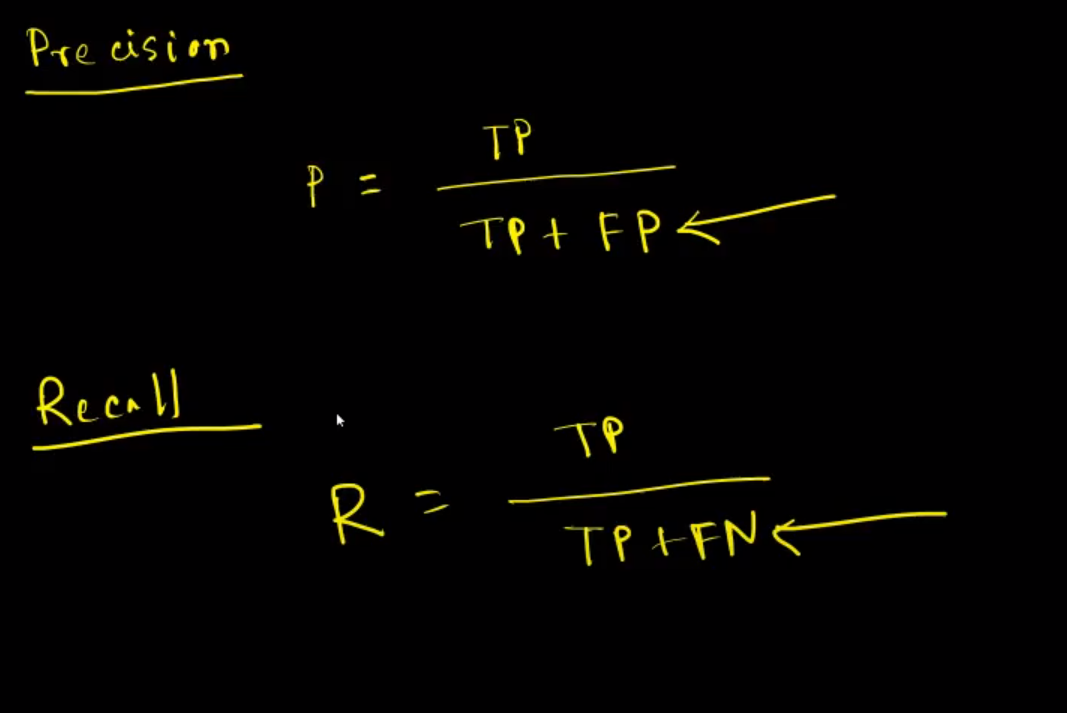 Precision
P = TP
TP + FP
Recall
R = TP
TP + FN